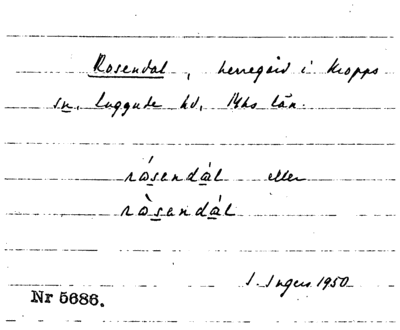 Rosendal, herregård i Kropps
sn, Luggude hd, Mhs län.
rósendál eller
ròsendál
I. Ingers 1950
Nr 5686.